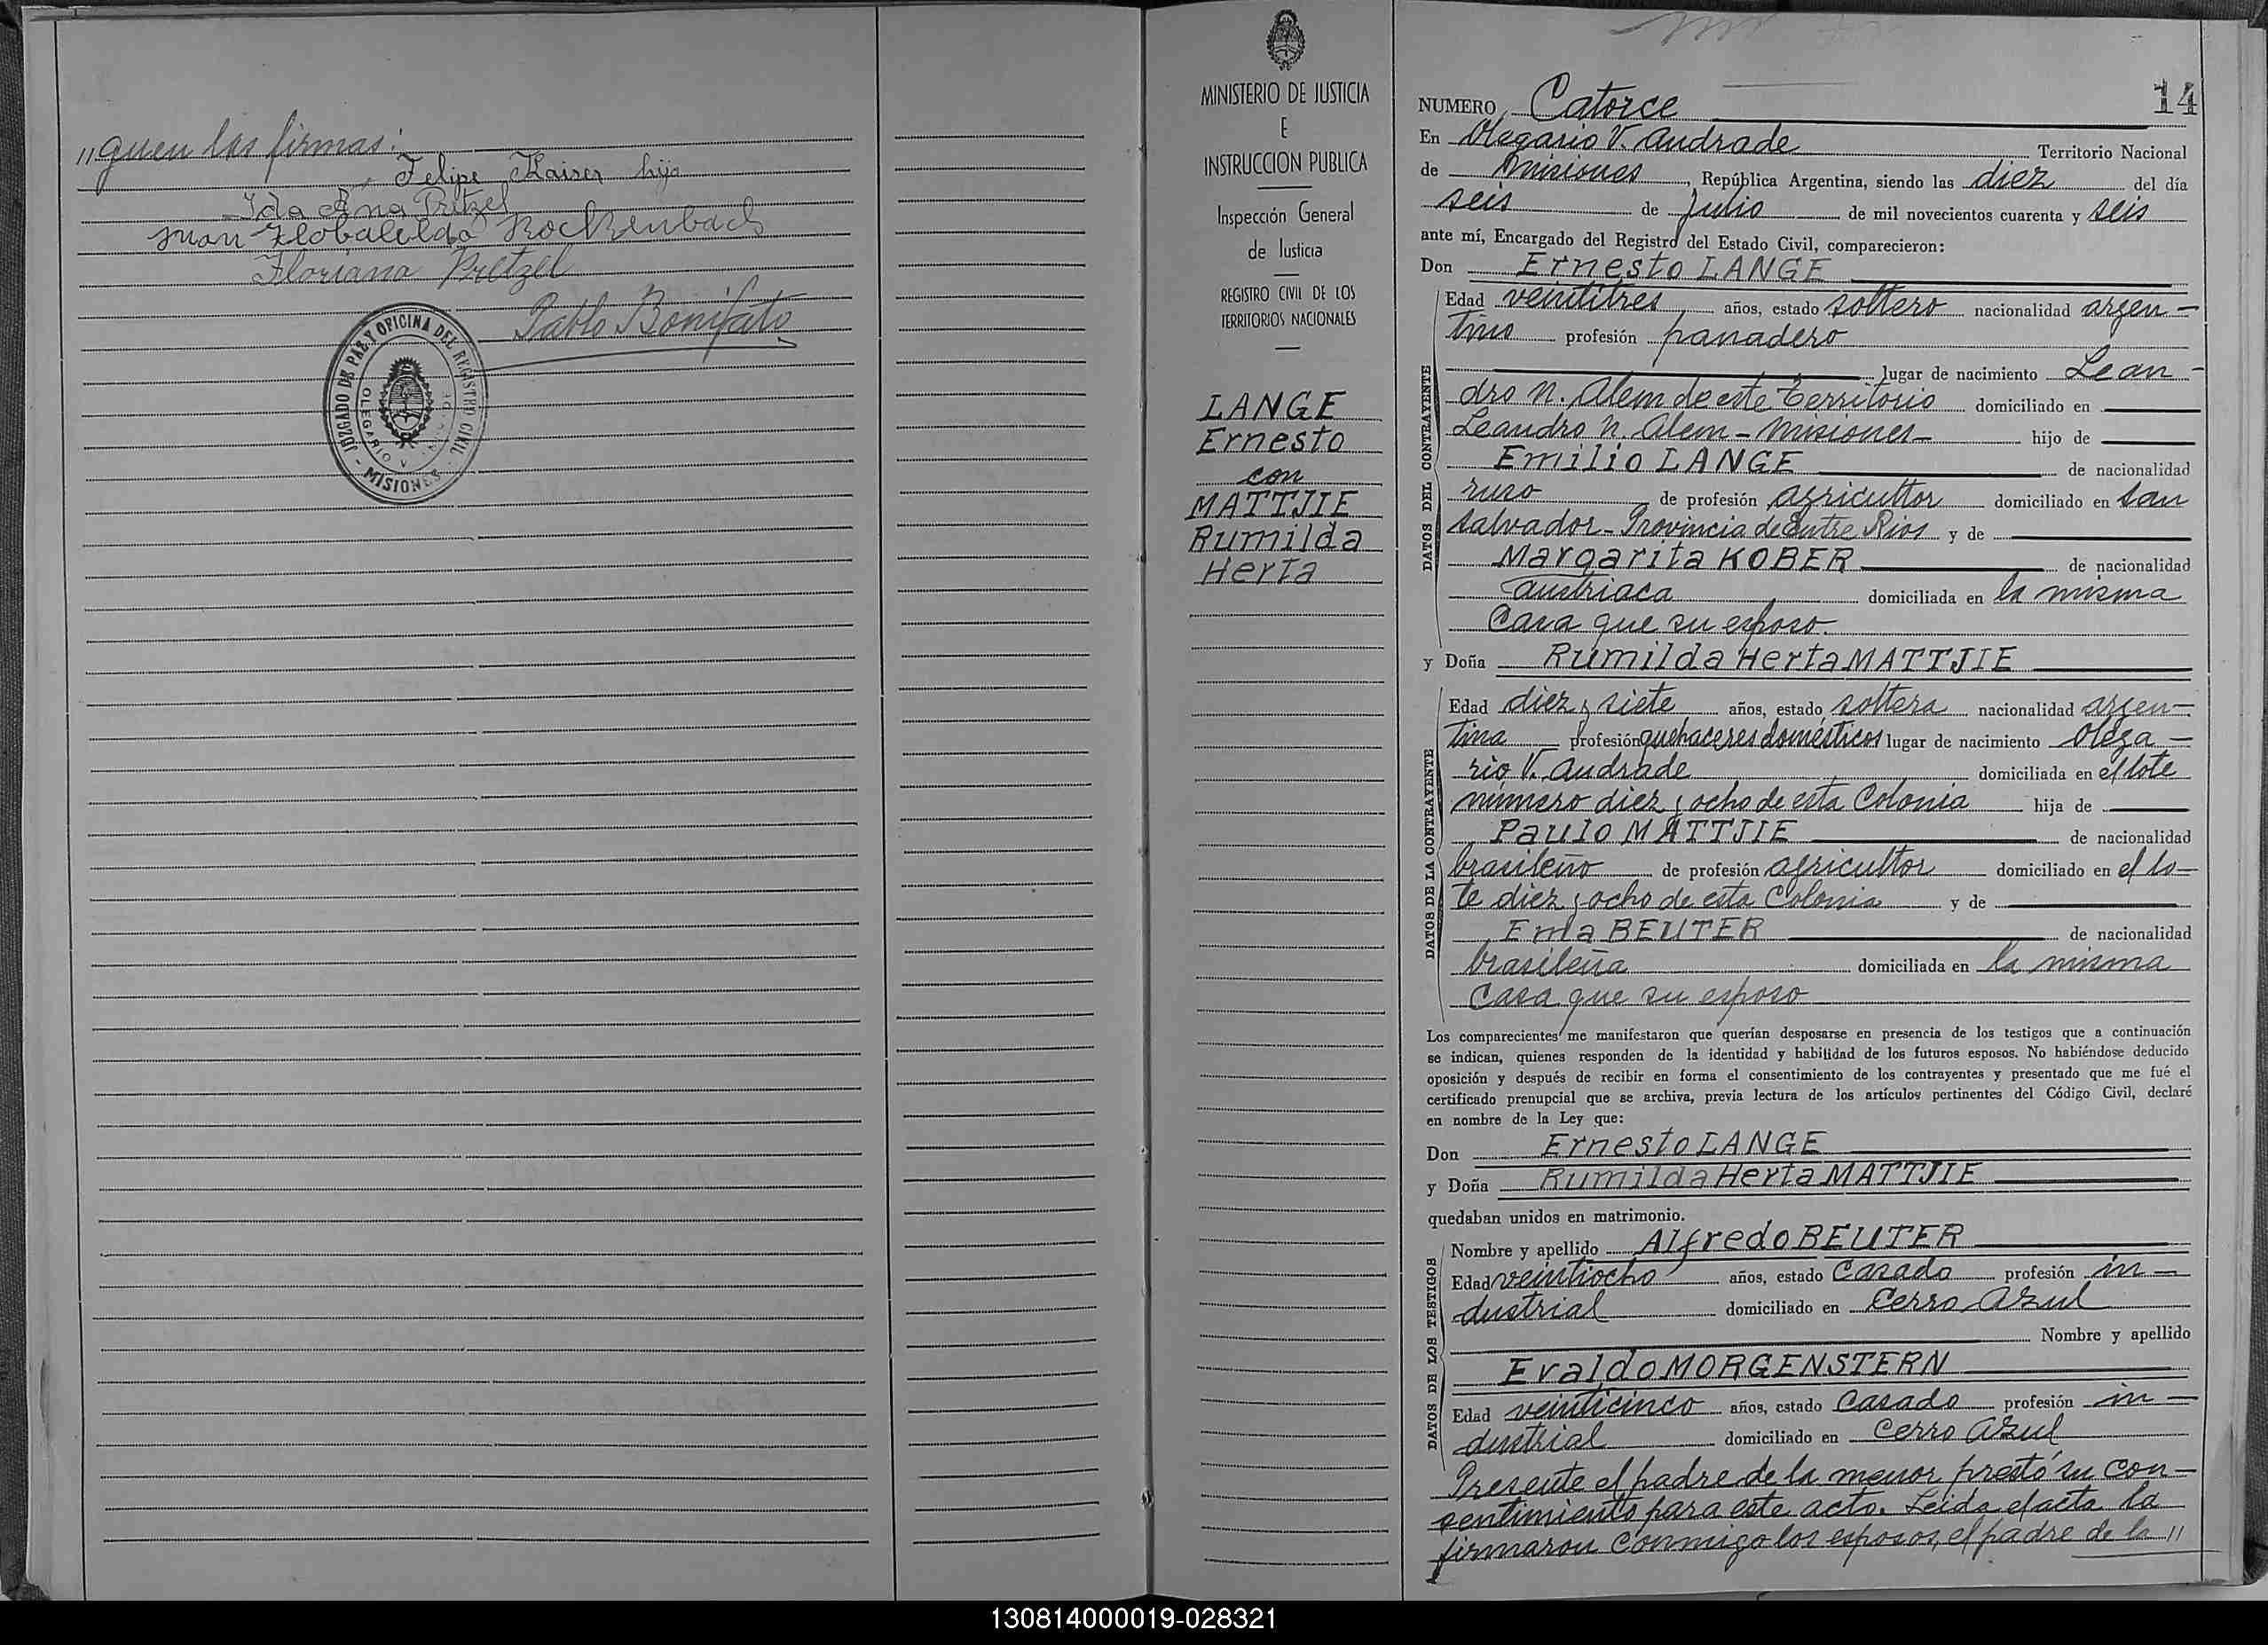 "guen las firmas:
Felipe Kaiser hijo
Ida Ana Pritzel
Juan Rockenbach
Floriano Pritzel
Pablo Bonifato
JUZGADO DE PAZ Y OFICINA DEL REGISTRO CIVIL
OLEGARIO V. ANDRADE
- MISIONES -
MINISTERIO DE JUSTICIA
E
INSTRUCCION PUBLICA
Inspección General
de Justicia
REGISTRO CIVIL DE LOS
TERRITORIOS NACIONALES
LANGE
Ernesto
con
MATTJIE
Rumilda
Herta
14
NUMERO Catorce
En Olegario V. Andrade Territorio Nacional
de Misiones, República Argentina, siendo las diez del día
seis de Julio de mil novecientos cuarenta y seis
ante mí, Encargado del Registro del Estado Civil, comparecieron:
Don Ernesto LANGE
DATOS DEL CONTRAYENTE
Edad veintitres años, estado soltero nacionalidad argen-
tino profesión panadero
lugar de nacimiento Lean-
dro N. Alem de este territorio domiciliado en
Leandro N. Alem - Misiones - hijo de
Emilio LANGE de nacionalidad
ruso de profesión agricultor domiciliado en San
Salvador - Provincia de Entre Rios y de
Margarita KOBER de nacionalidad
austriaca domiciliada en la misma
Casa que su esposo.
y Doña Rumilda Herta MATTJIE
DATOS DE LA CONTRAYENTE
Edad diez y siete años, estado soltera nacionalidad argen-
tina profesión quehaceres domésticos lugar de nacimiento Olega-
rio V. Andrade domiciliada en el lote
número diez y ocho de esta Colonia hija de
Paulo MATTJIE de nacionalidad
brasileño de profesión agricultor domiciliado en el lo-
te diez y ocho de esta Colonia y de
Ema BEUTER de nacionalidad
brasileña domiciliada en la misma
Casa que su esposo
Los comparecientes me manifestaron que querían desposarse en presencia de los testigos que a continuación
se indican, quienes responden de la identidad y habilidad de los futuros esposos. No habiéndose deducido
oposición y después de recibir en forma el consentimiento de los contrayentes y presentado que me fué el
certificado prenupcial que se archiva, previa lectura de los artículos pertinentes del Código Civil, declaré
en nombre de la Ley que:
Don Ernesto LANGE
y Doña Rumilda Herta MATTJIE
quedaban unidos en matrimonio.
DATOS DE LOS TESTIGOS
Nombre y apellido Alfredo BEUTER
Edad veintiocho años, estado Casado profesión in-
dustrial domiciliado en Cerro Azul
Nombre y apellido
Evaldo MORGENSTERN
Edad veinticinco años, estado Casado profesión in-
dustrial domiciliado en Cerro Azul
Presente el padre de la menor prestó su con-
sentimiento para este acto. Leida el acta la
firmaron conmigo los esposos, el padre de la "
130814000019-028321